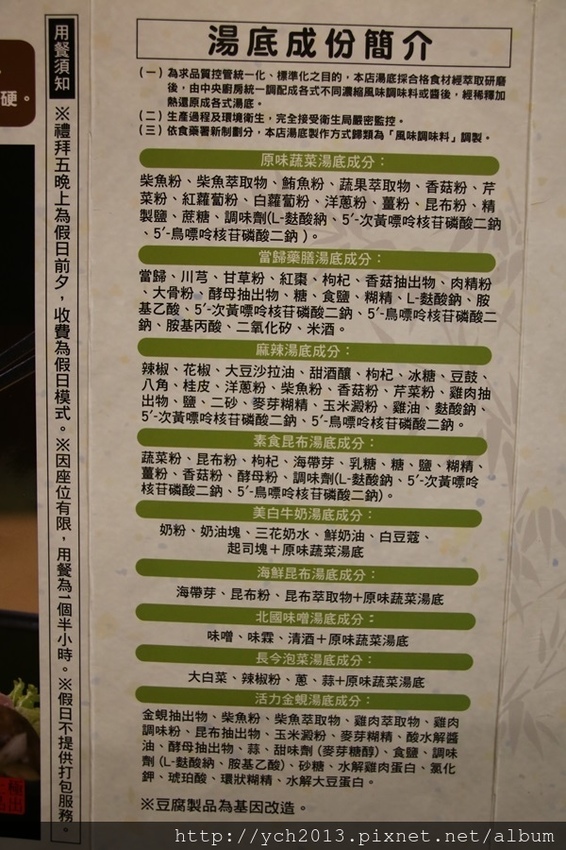 湯底成份簡介
(一)為求品質控管統一化、標準化之目的，本店湯底採合格食材經萃取研磨
後，由中央廚房統一調配成各式不同濃縮風味調味料或醬後，經稀釋加
熱還原成各式湯底。
(二)生產過程及環境衛生，完全接受衛生局嚴密監控。
(三)依食藥署新制劃分，本店湯底製作方式歸類為「風味調味料」調製。
原味蔬菜湯底成分：
柴魚粉、柴魚萃取物、鮪魚粉、蔬果萃取物、香菇粉、芹
菜粉、紅蘿蔔粉、白蘿蔔粉、洋蔥粉、薑粉、昆布粉、精
製鹽、蔗糖、調味劑(L-麩酸納、5′-次黃嘌呤核苷磷酸二鈉
、5′-鳥嘌呤核苷磷酸二鈉)。
當歸藥膳湯底成分：
當歸、川芎、甘草粉、紅棗、枸杞、香菇抽出物、肉精粉
、大骨粉、酵母抽出物、糖、食鹽、糊精、L-麩酸鈉、胺
基乙酸、5′-次黃嘌呤核苷磷酸二鈉、5′-鳥嘌呤核苷磷酸二
鈉、胺基丙酸、二氧化矽、米酒。
麻辣湯底成分：
辣椒、花椒、大豆沙拉油、甜酒釀、枸杞、冰糖、豆鼓、
八角、桂皮、洋蔥粉、柴魚粉、香菇粉、芹菜粉、雞肉抽
出物、鹽、二砂、麥芽糊精、玉米澱粉、雞油、麩酸鈉、
5′-次黃嘌呤核苷磷酸二鈉、5′-鳥嘌呤核苷磷酸二鈉。
素食昆布湯底成分：
蔬菜粉、昆布粉、枸杞、海帶芽、乳糖、糖、鹽、糊精、
薑粉、香菇粉、酵母粉、調味劑(L-麩酸鈉、5′-次黃嘌呤
核苷磷酸二鈉、5′-鳥嘌呤核苷磷酸二鈉)。
美白牛奶湯底成分：
奶粉、奶油塊、三花奶水、鮮奶油、白豆蔻、
起司塊＋原味蔬菜湯底
海鮮昆布湯底成分：
海帶芽、昆布粉、昆布萃取物+原味蔬菜湯底
北國味噌湯底成分：
味噌、味霖、清酒＋原味蔬菜湯底
長今泡菜湯底成分：
大白菜、辣椒粉、蔥、蒜+原味蔬菜湯底
活力金蜆湯底成分：
金蜆抽出物、柴魚粉、柴魚萃取物、雞肉萃取物、雞肉
調味粉、昆布抽出物、玉米澱粉、麥芽糊精、酸水解醬
油、酵母抽出物、蒜、甜味劑(麥芽糖醇)、食鹽、調味
劑(L-麩酸鈉、胺基乙酸)、砂糖、水解雞肉蛋白、氯化
鉀、琥珀酸、環狀糊精、水解大豆蛋白。
※豆腐製品為基因改造。
用餐須知
※禮拜五晚上為假日前夕，收費為假日模式。※因座位有限，用餐為1個半小時。※假日不提供打包服務。
硬。
http://ych2013.pixnet.net/album